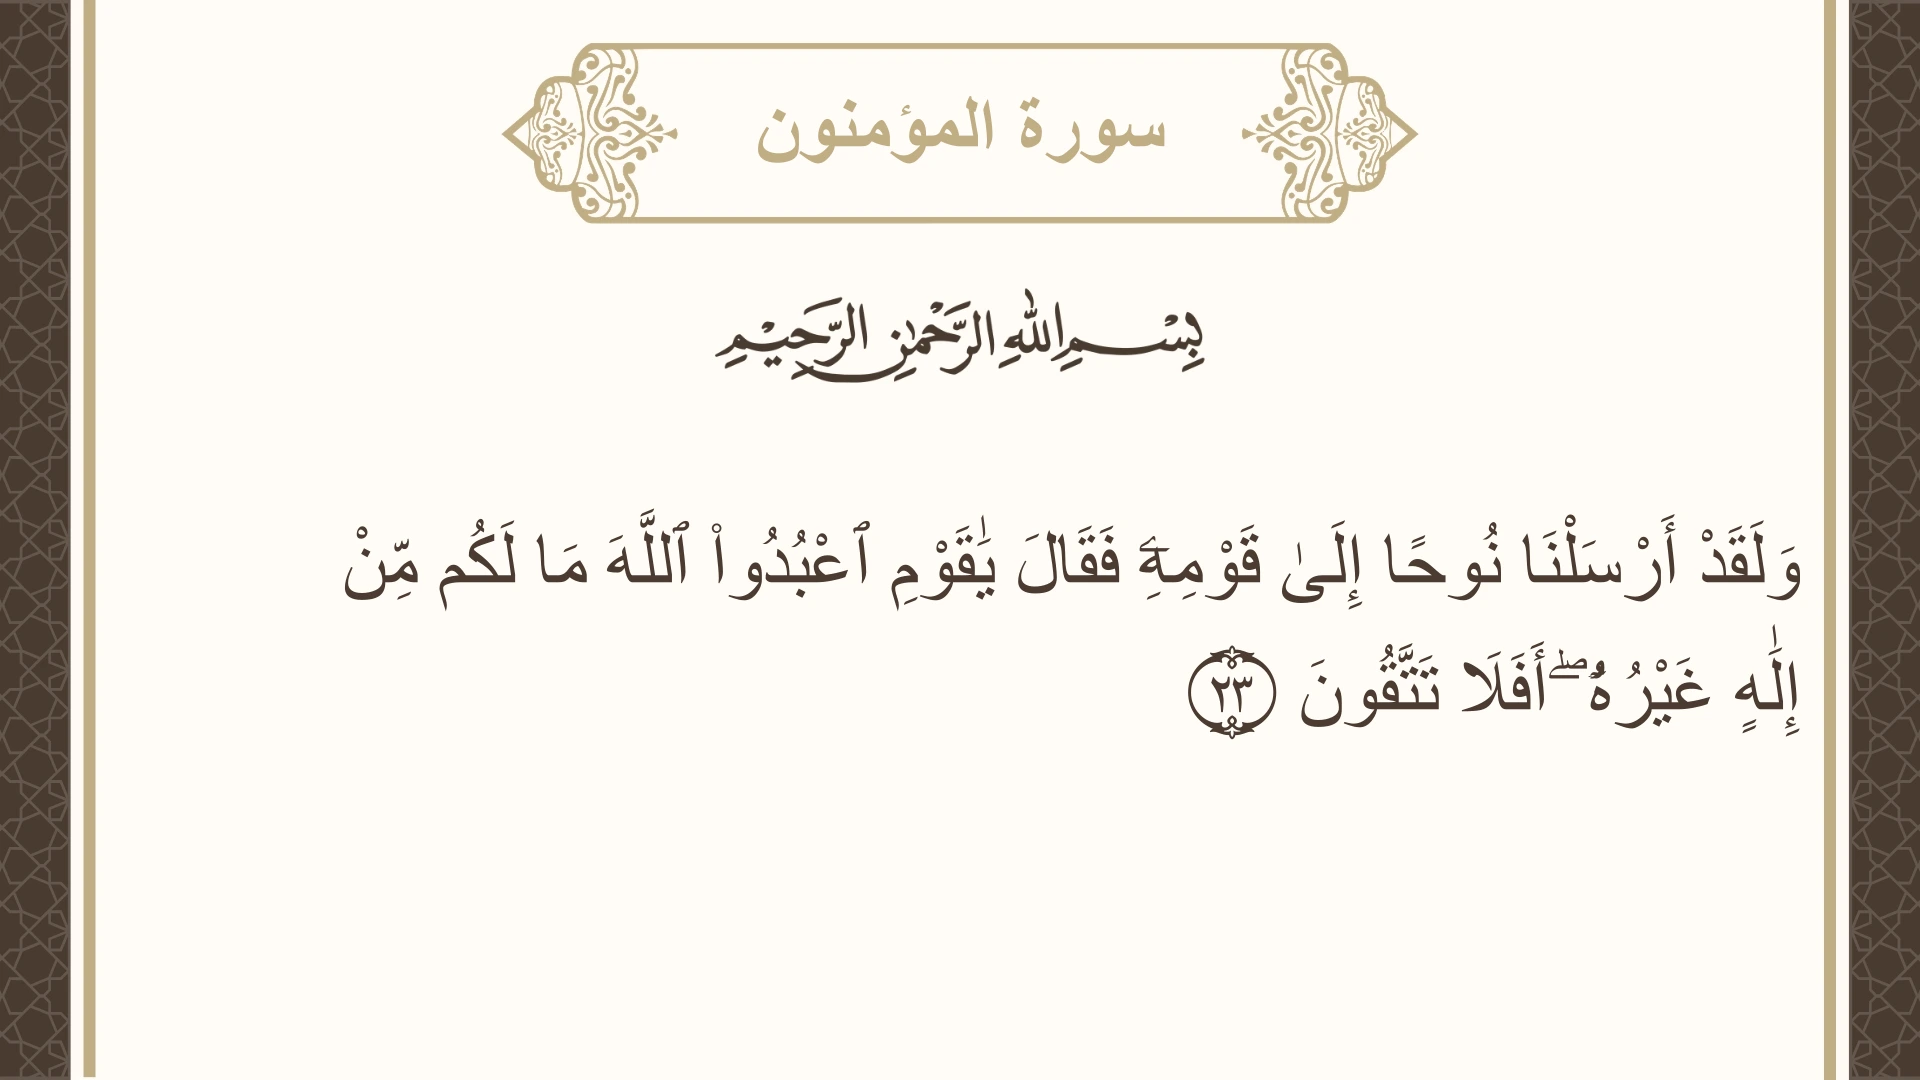 سورة المؤمنون
بِسْمِ اللهِ الرَّحْمٰنِ الرَّحِيْمِ
وَلَقَدْ أَرْسَلْنَا نُوحًا إِلَىٰ قَوْمِهِۦ فَقَالَ يَٰقَوْمِ ٱعْبُدُوا۟ ٱللَّهَ مَا لَكُم مِّنْ
إِلَٰهٍ غَيْرُهُۥٓ ۖ أَفَلَا تَتَّقُونَ ٢٣